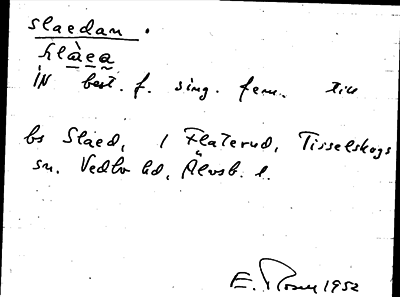 slaedan.
IN best. f. sing. fem. till
bs Slaed, / Flaterud, Tisselskogs
sn. Vedbo hd, Älvsb. l.
E. Rosen 1952